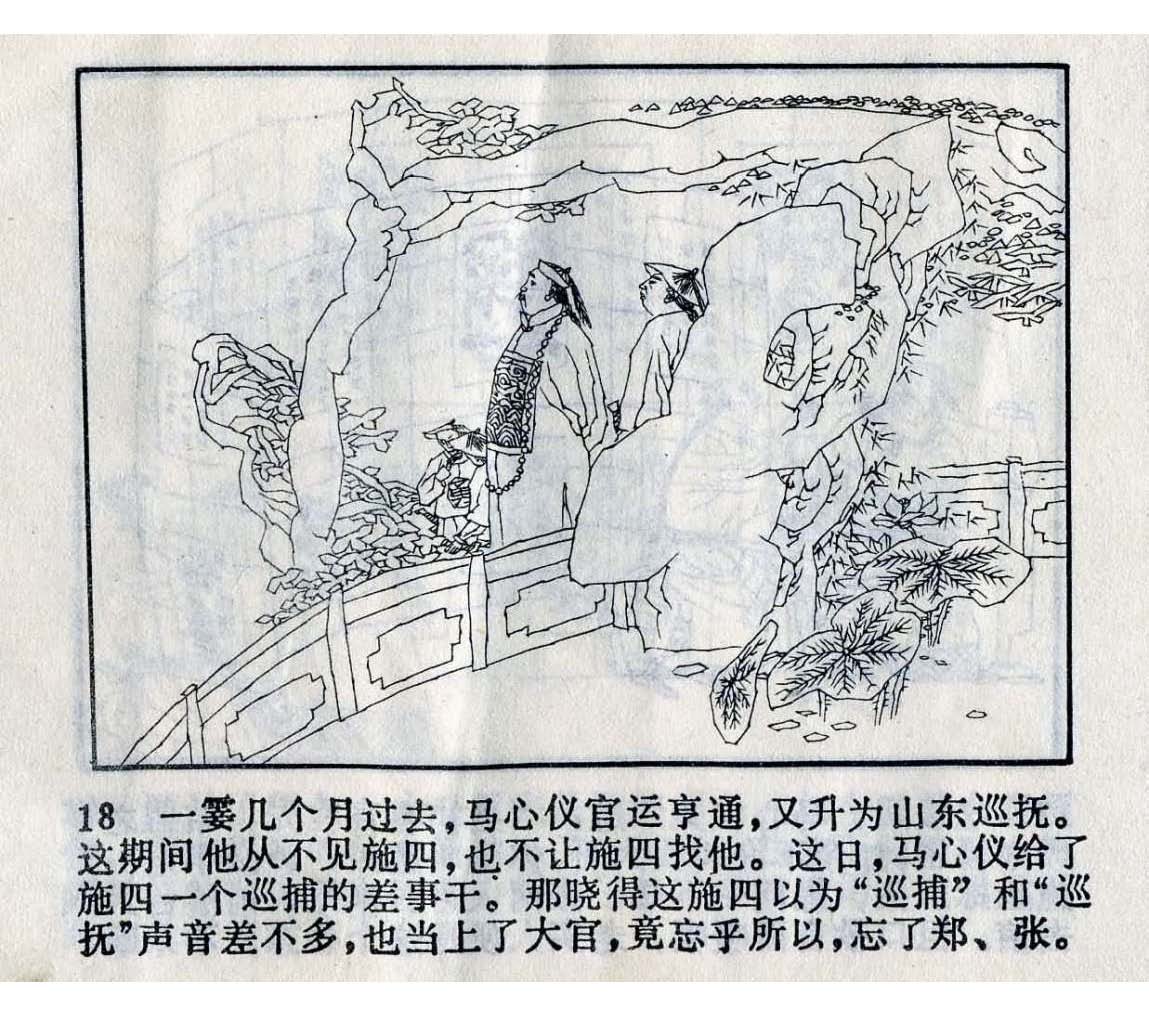 18 一霎几个月过去，马心仪官运亨通，又升为山东巡抚。
这期间他从不见施四，也不让施四找他。这日，马心仪给了
施四一个巡捕的差事干。那晓得这施四以为“巡捕”和“巡
抚”声音差不多，也当上了大官，竟忘乎所以，忘了郑、张。